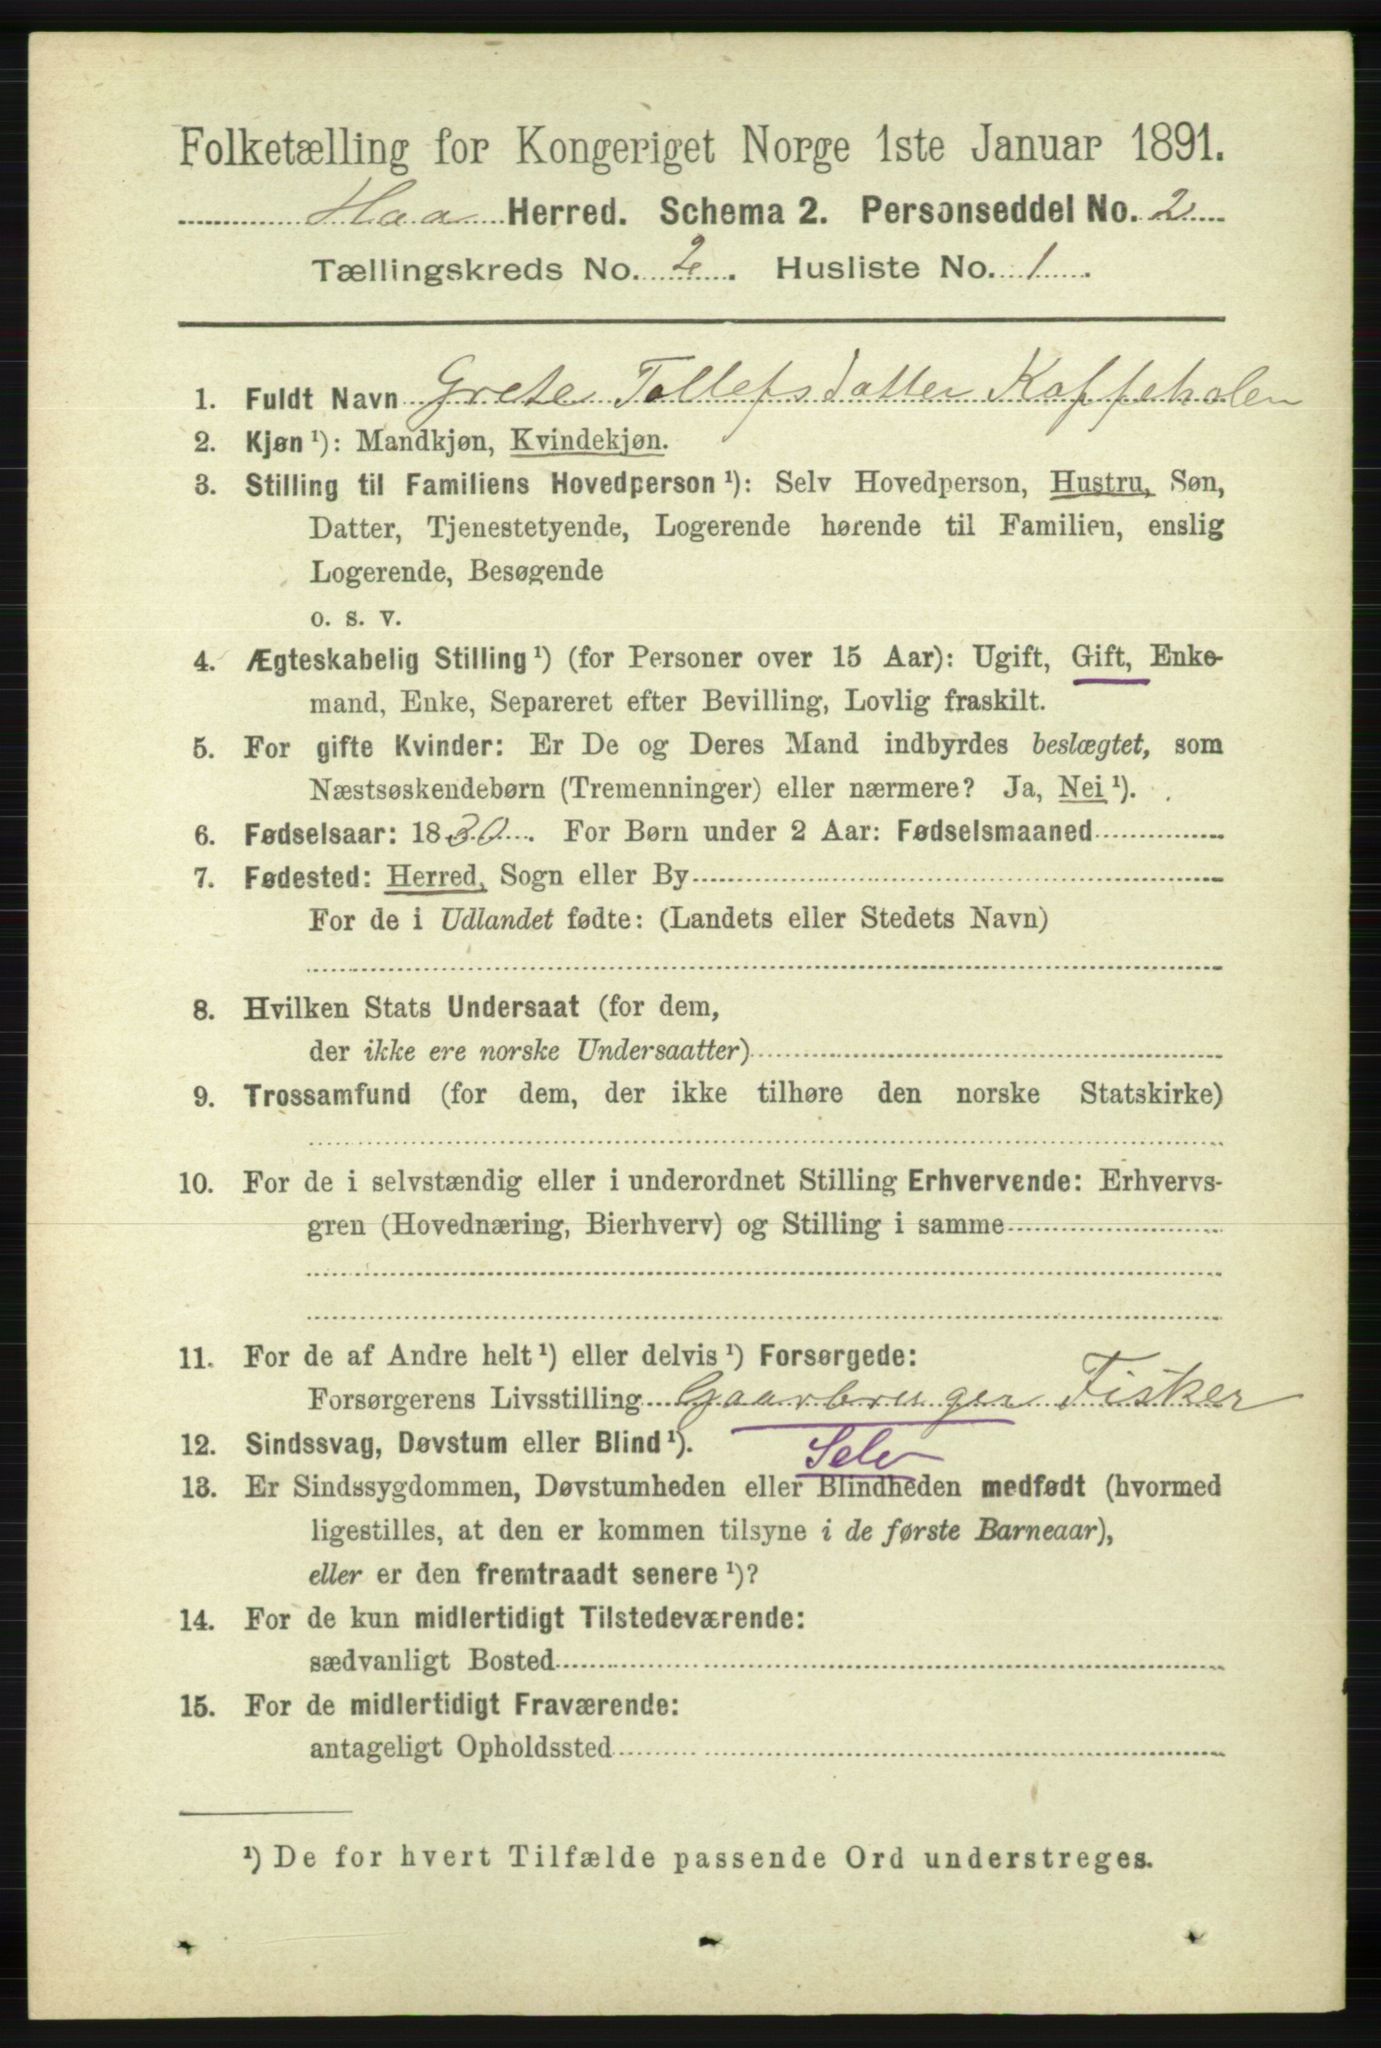 Folketælling for Kongeriget Norge 1ste Januar 1891.
Haa Herred. Schema 2. Personseddel No. 2
Tællingskreds No. 2. Husliste No. 1.
1. Fuldt Navn Grete Tollefsdatter Koffeholen
2. Kjøn ¹): Mandkjøn, Kvindekjøn.
3. Stilling til Familiens Hovedperson ¹): Selv Hovedperson, Hustru, Søn,
Datter, Tjenestetyende, Logerende hørende til Familien, enslig
Logerende, Besøgende
o. s. v.
4. Ægteskabelig Stilling ¹) (for Personer over 15 Aar): Ugift, Gift, Enke-
mand, Enke, Separeret efter Bevilling, Lovlig fraskilt.
5. For gifte Kvinder: Er De og Deres Mand indbyrdes beslægtet, som
Næstsøskendebørn (Tremenninger) eller nærmere? Ja, Nei ¹).
6. Fødselsaar: 1830. For Børn under 2 Aar: Fødselsmaaned
7. Fødested: Herred, Sogn eller By
For de i Udlandet fødte: (Landets eller Stedets Navn)
8. Hvilken Stats Undersaat (for dem,
der ikke ere norske Undersaatter)
9. Trossamfund (for dem, der ikke tilhøre den norske Statskirke)
10. For de i selvstændig eller i underordnet Stilling Erhvervende: Erhvervs-
gren (Hovednæring, Bierhverv) og Stilling i samme
11. For de af Andre helt ¹) eller delvis ¹) Forsørgede:
Forsørgerens Livsstilling Gaarbruger Fisker
12. Sindssvag, Døvstum eller Blind ¹). Selv
13. Er Sindssygdommen, Døvstumheden eller Blindheden medfødt (hvormed
ligestilles, at den er kommen tilsyne i de første Barneaar),
eller er den fremtraadt senere ¹)?
14. For de kun midlertidigt Tilstedeværende:
sædvanligt Bosted
15. For de midlertidigt Fraværende:
antageligt Opholdssted
¹) De for hvert Tilfælde passende Ord understreges.